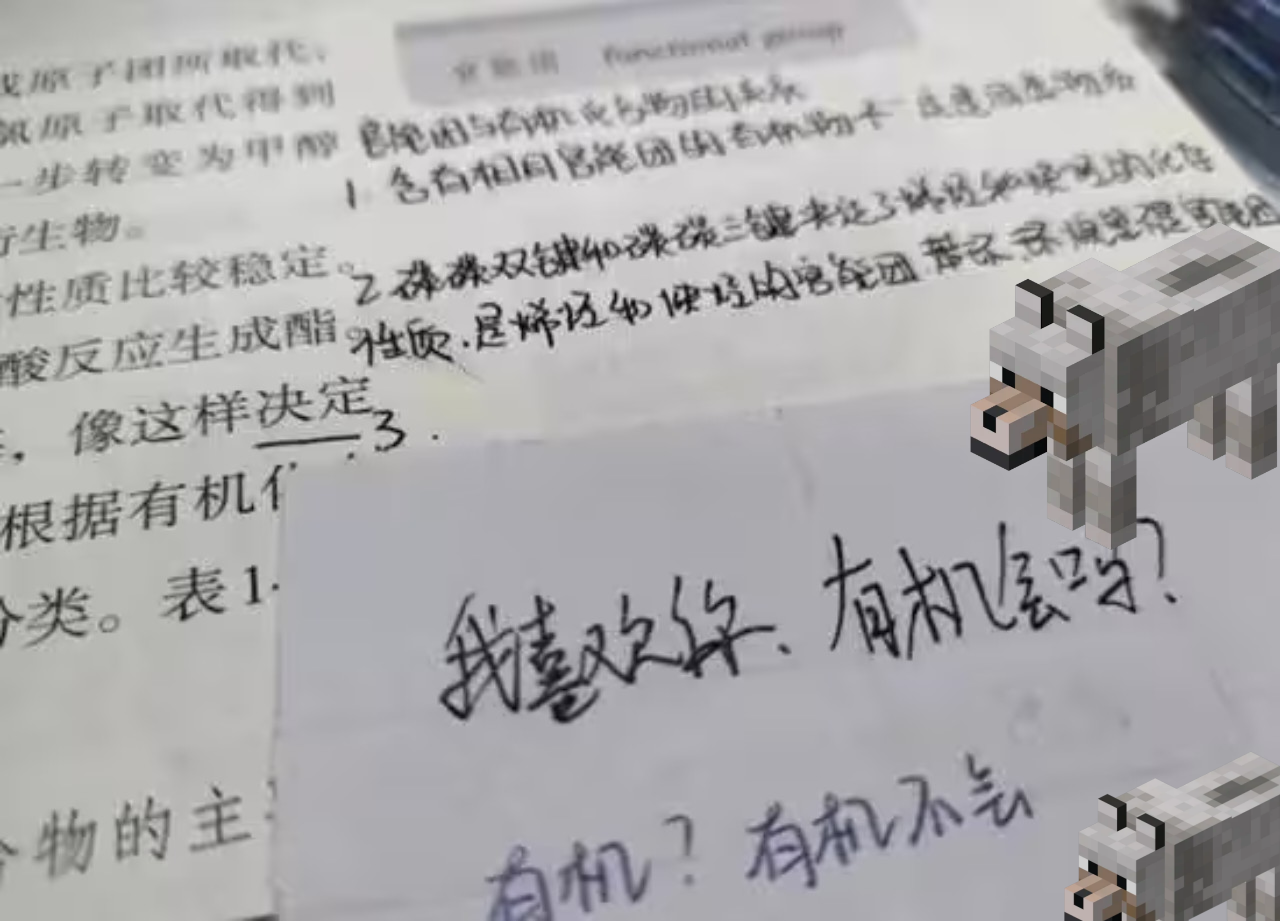 官能团 functional group
或原子团所取代,
氯原子取代得到
一步转变为甲醇
衍生物。
性质比较稳定。
酸反应生成酯。
，像这样决定
根据有机
分类。表1-
合物的主
官能团与有机化合物的关系
1 含有相同官能团的有机物不一定是同系物
2 碳碳双键和碳碳三键决定了烯烃和炔烃的化学
性质.是烯烃和炔烃的官能团 苯环
3.
我喜欢你、有机会吗?
有机? 有机不会